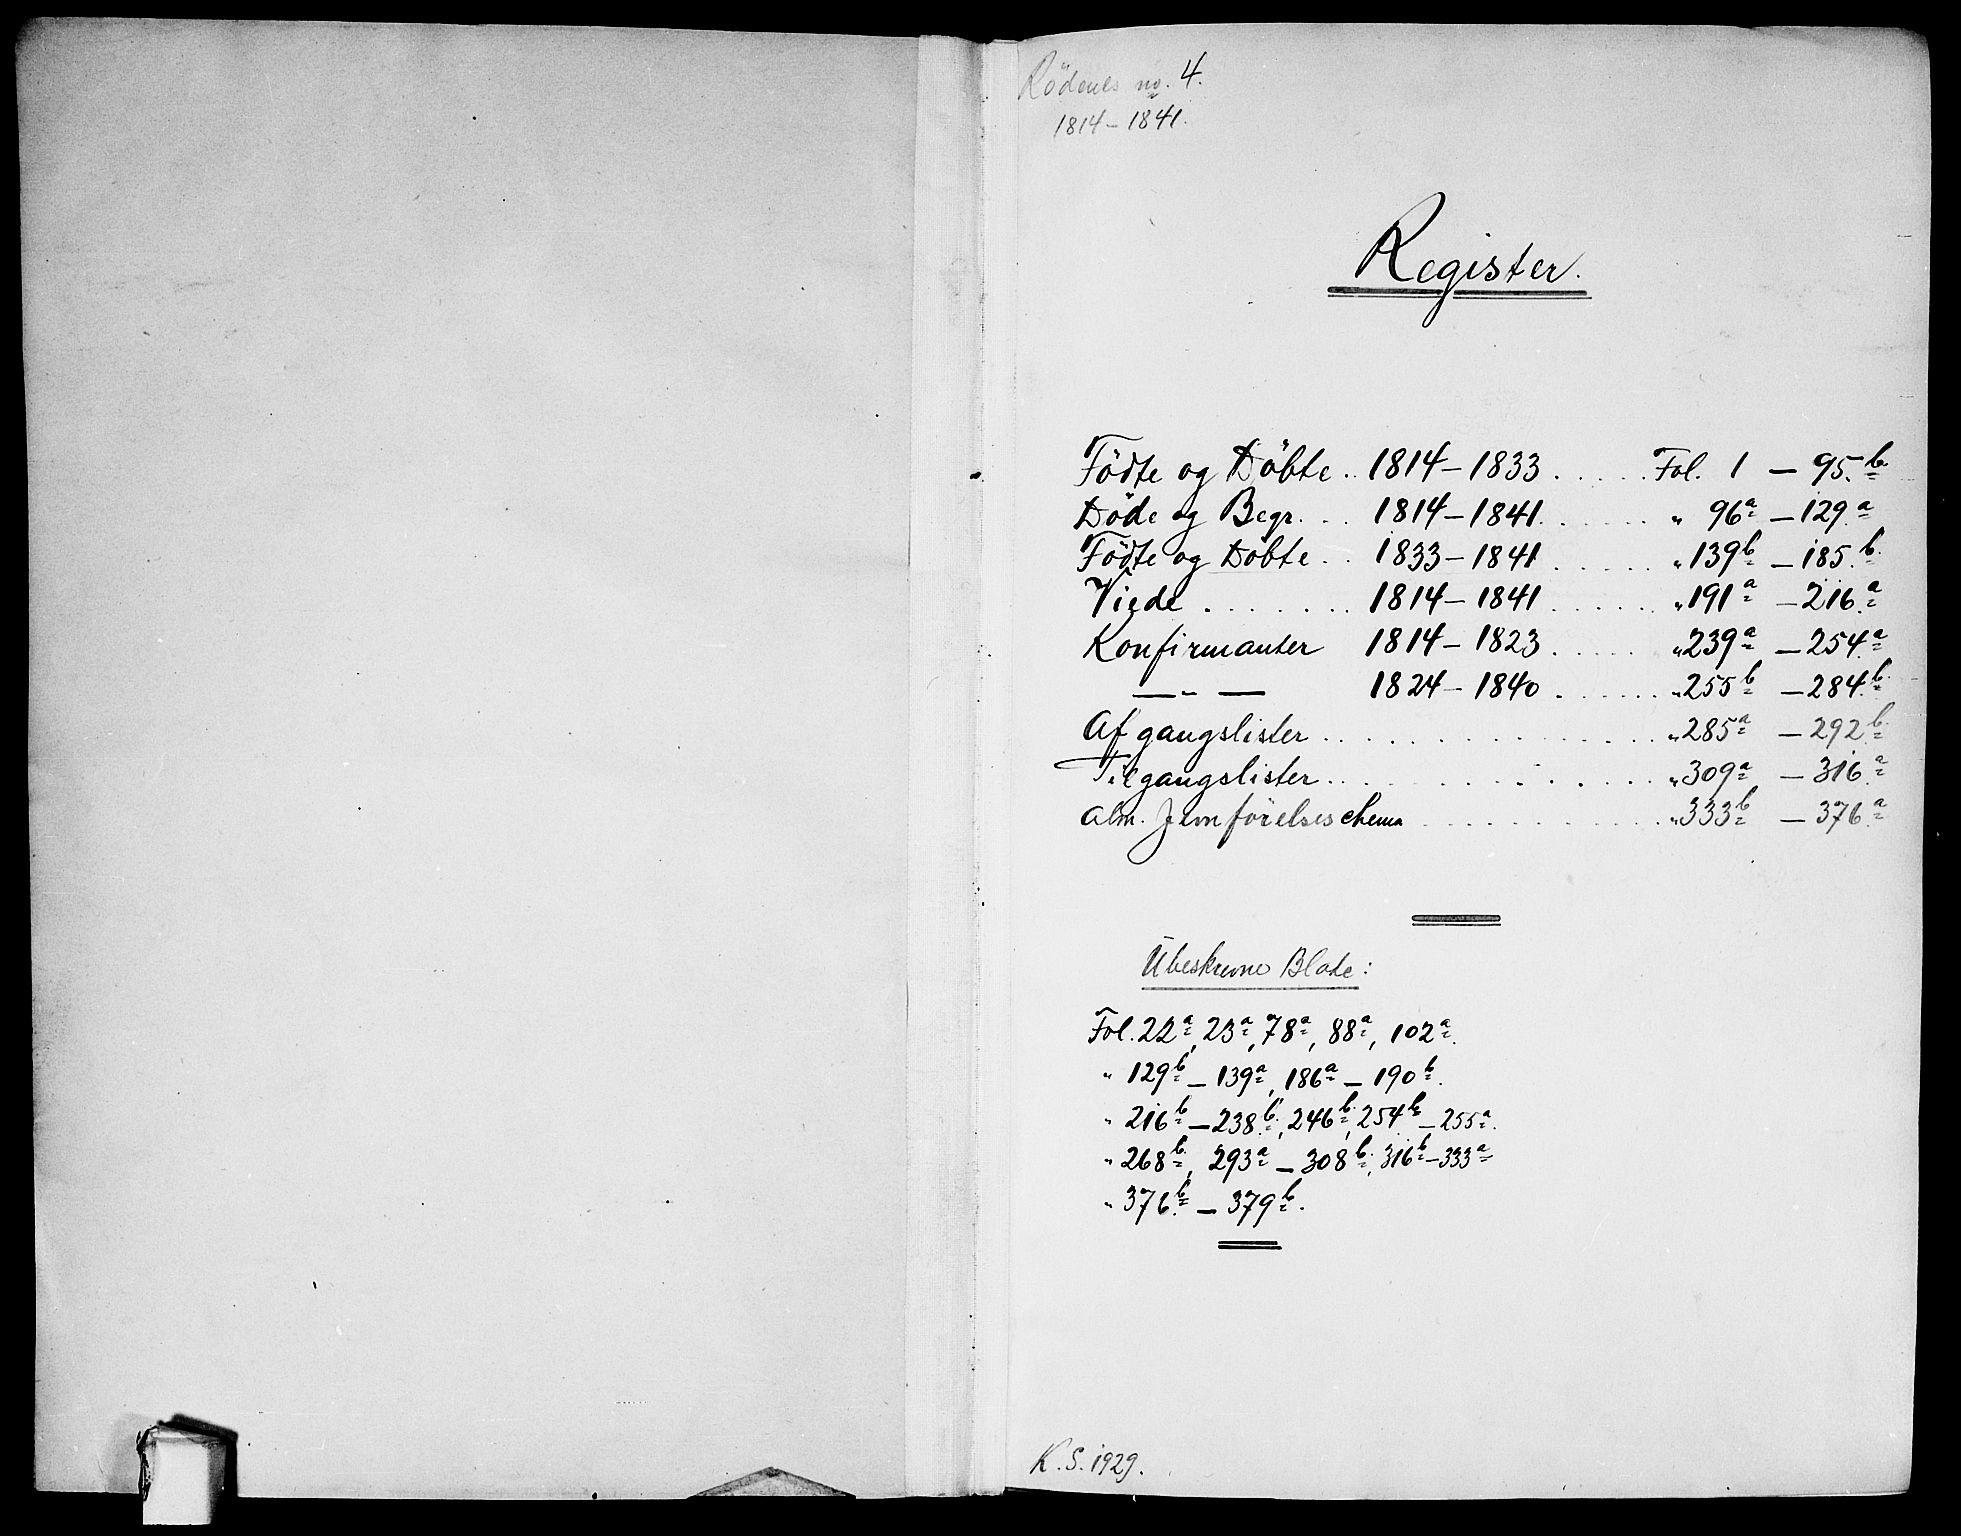 Rödenes no. 4.
1814 – 1841.
Register.
Födte og Döbte .. 1814 – 1833 ..... Fol. 1 – 95.b
Döde og Begr. ... 1814 – 1841 ...... " 96a – 129.a
Födte og Döbte .. 1833 – 1841 ...... " 139b – 185.b
Viede ....... 1814 – 1841 ...... " 191a – 216.a
Konfirmanter 1814 – 1823 ..... " 239a – 254.a
— " — 1824 – 1840 ..... " 255b – 284.b
Afgangslister ................ " 285a – 292.b
Tilgangslister ............... " 309a – 316.a
Alm. Jevnförelsesschema .......... " 333b – 376.a
Ubeskrevne Blade:
Fol. 22a, 23a, 78a, 88a, 102a.
" 129b – 139a, 186a – 190b.
" 216b – 238b, 246b, 254b – 255a.
" 268b, 293a – 308b, 316b – 333a
" 376b – 379b.
K. S. 1929.